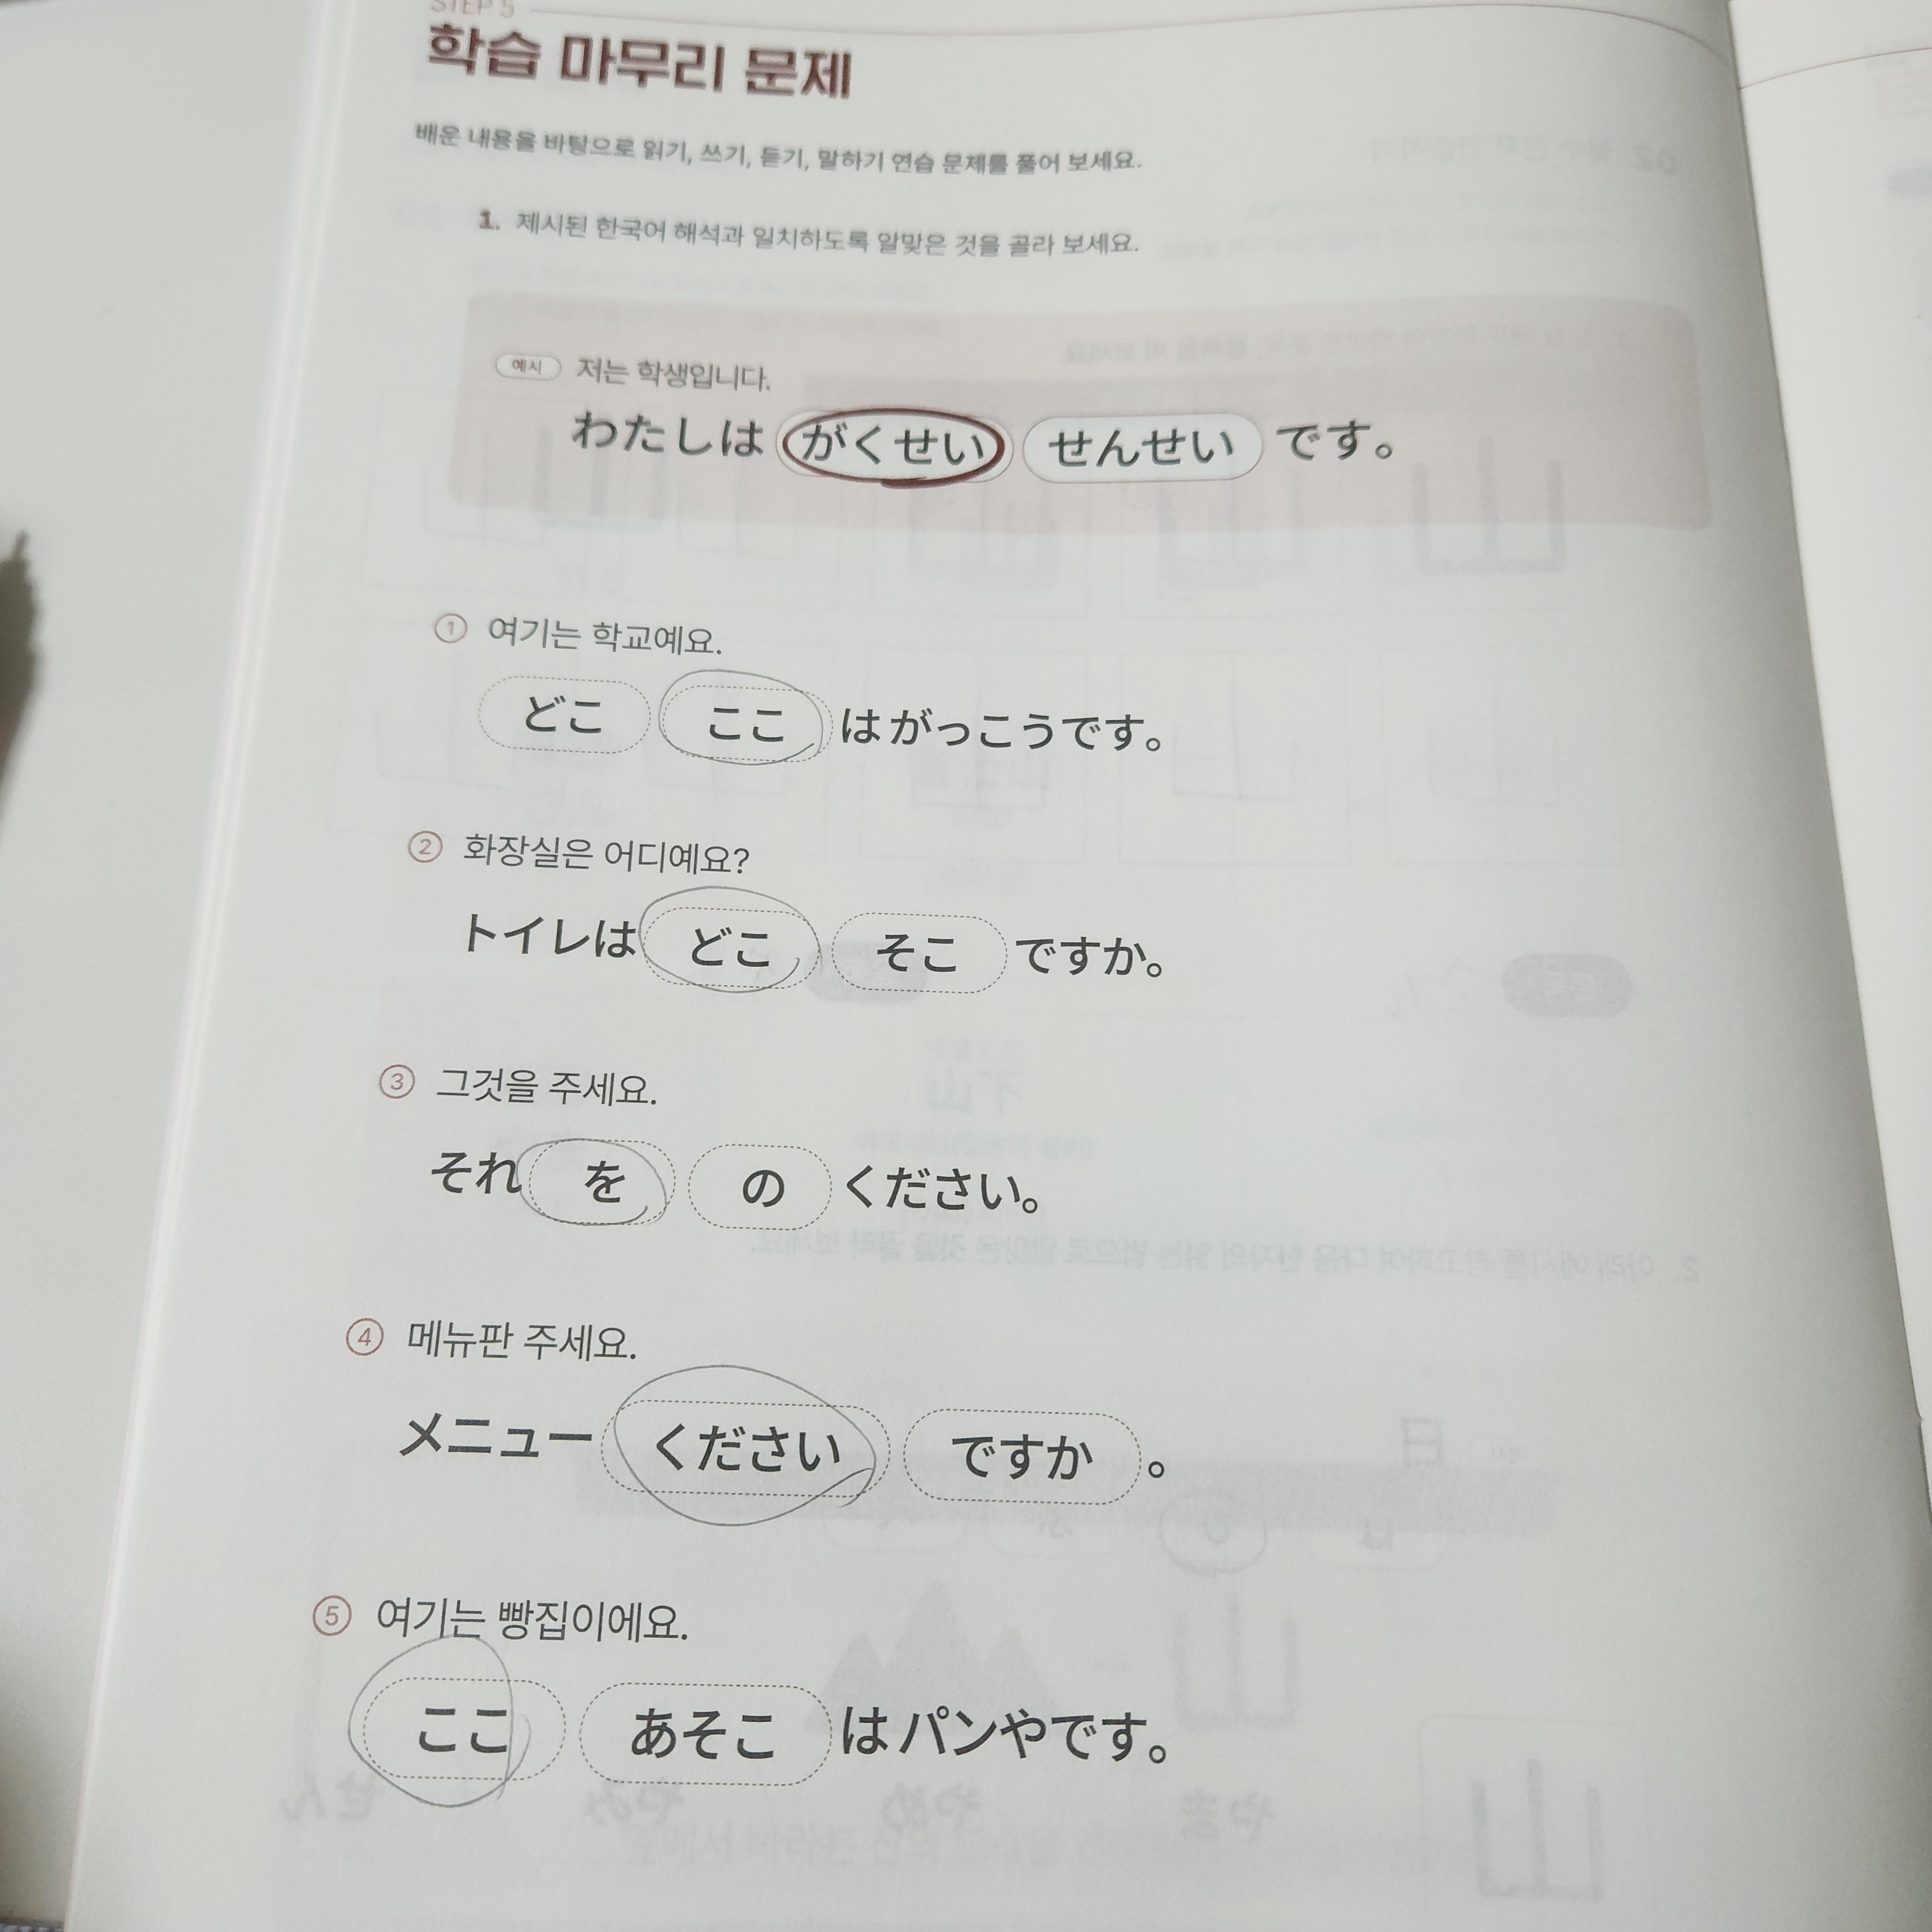 STEP 5
학습 마무리 문제
배운 내용을 바탕으로 읽기, 쓰기, 듣기, 말하기 연습 문제를 풀어 보세요.
1. 제시된 한국어 해석과 일치하도록 알맞은 것을 골라 보세요.
예시 저는 학생입니다.
わたしは がくせい せんせい です。
① 여기는 학교예요.
どこ ここ はがっこうです。
② 화장실은 어디예요?
トイレは どこ そこ ですか。
③ 그것을 주세요.
それ を の ください。
④ 메뉴판 주세요.
メニュー ください ですか 。
⑤ 여기는 빵집이에요.
ここ あそこ はパンやです。